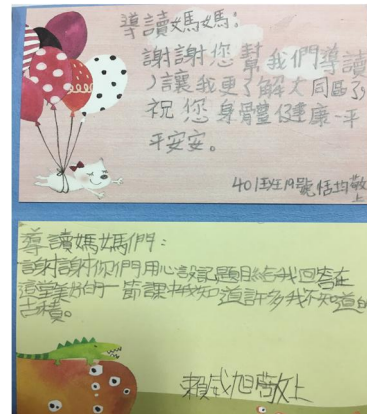 導讀媽媽：
謝謝您幫我們導讀
，讓我更了解大同區了
祝您身體健康、平
平安安。
401班19號恬均敬
上
導讀媽媽們：
謝謝你們用心設計題目給我回答在
這堂美好的一節課中我知道許多我不知道的
古蹟。
賴 旭敬上